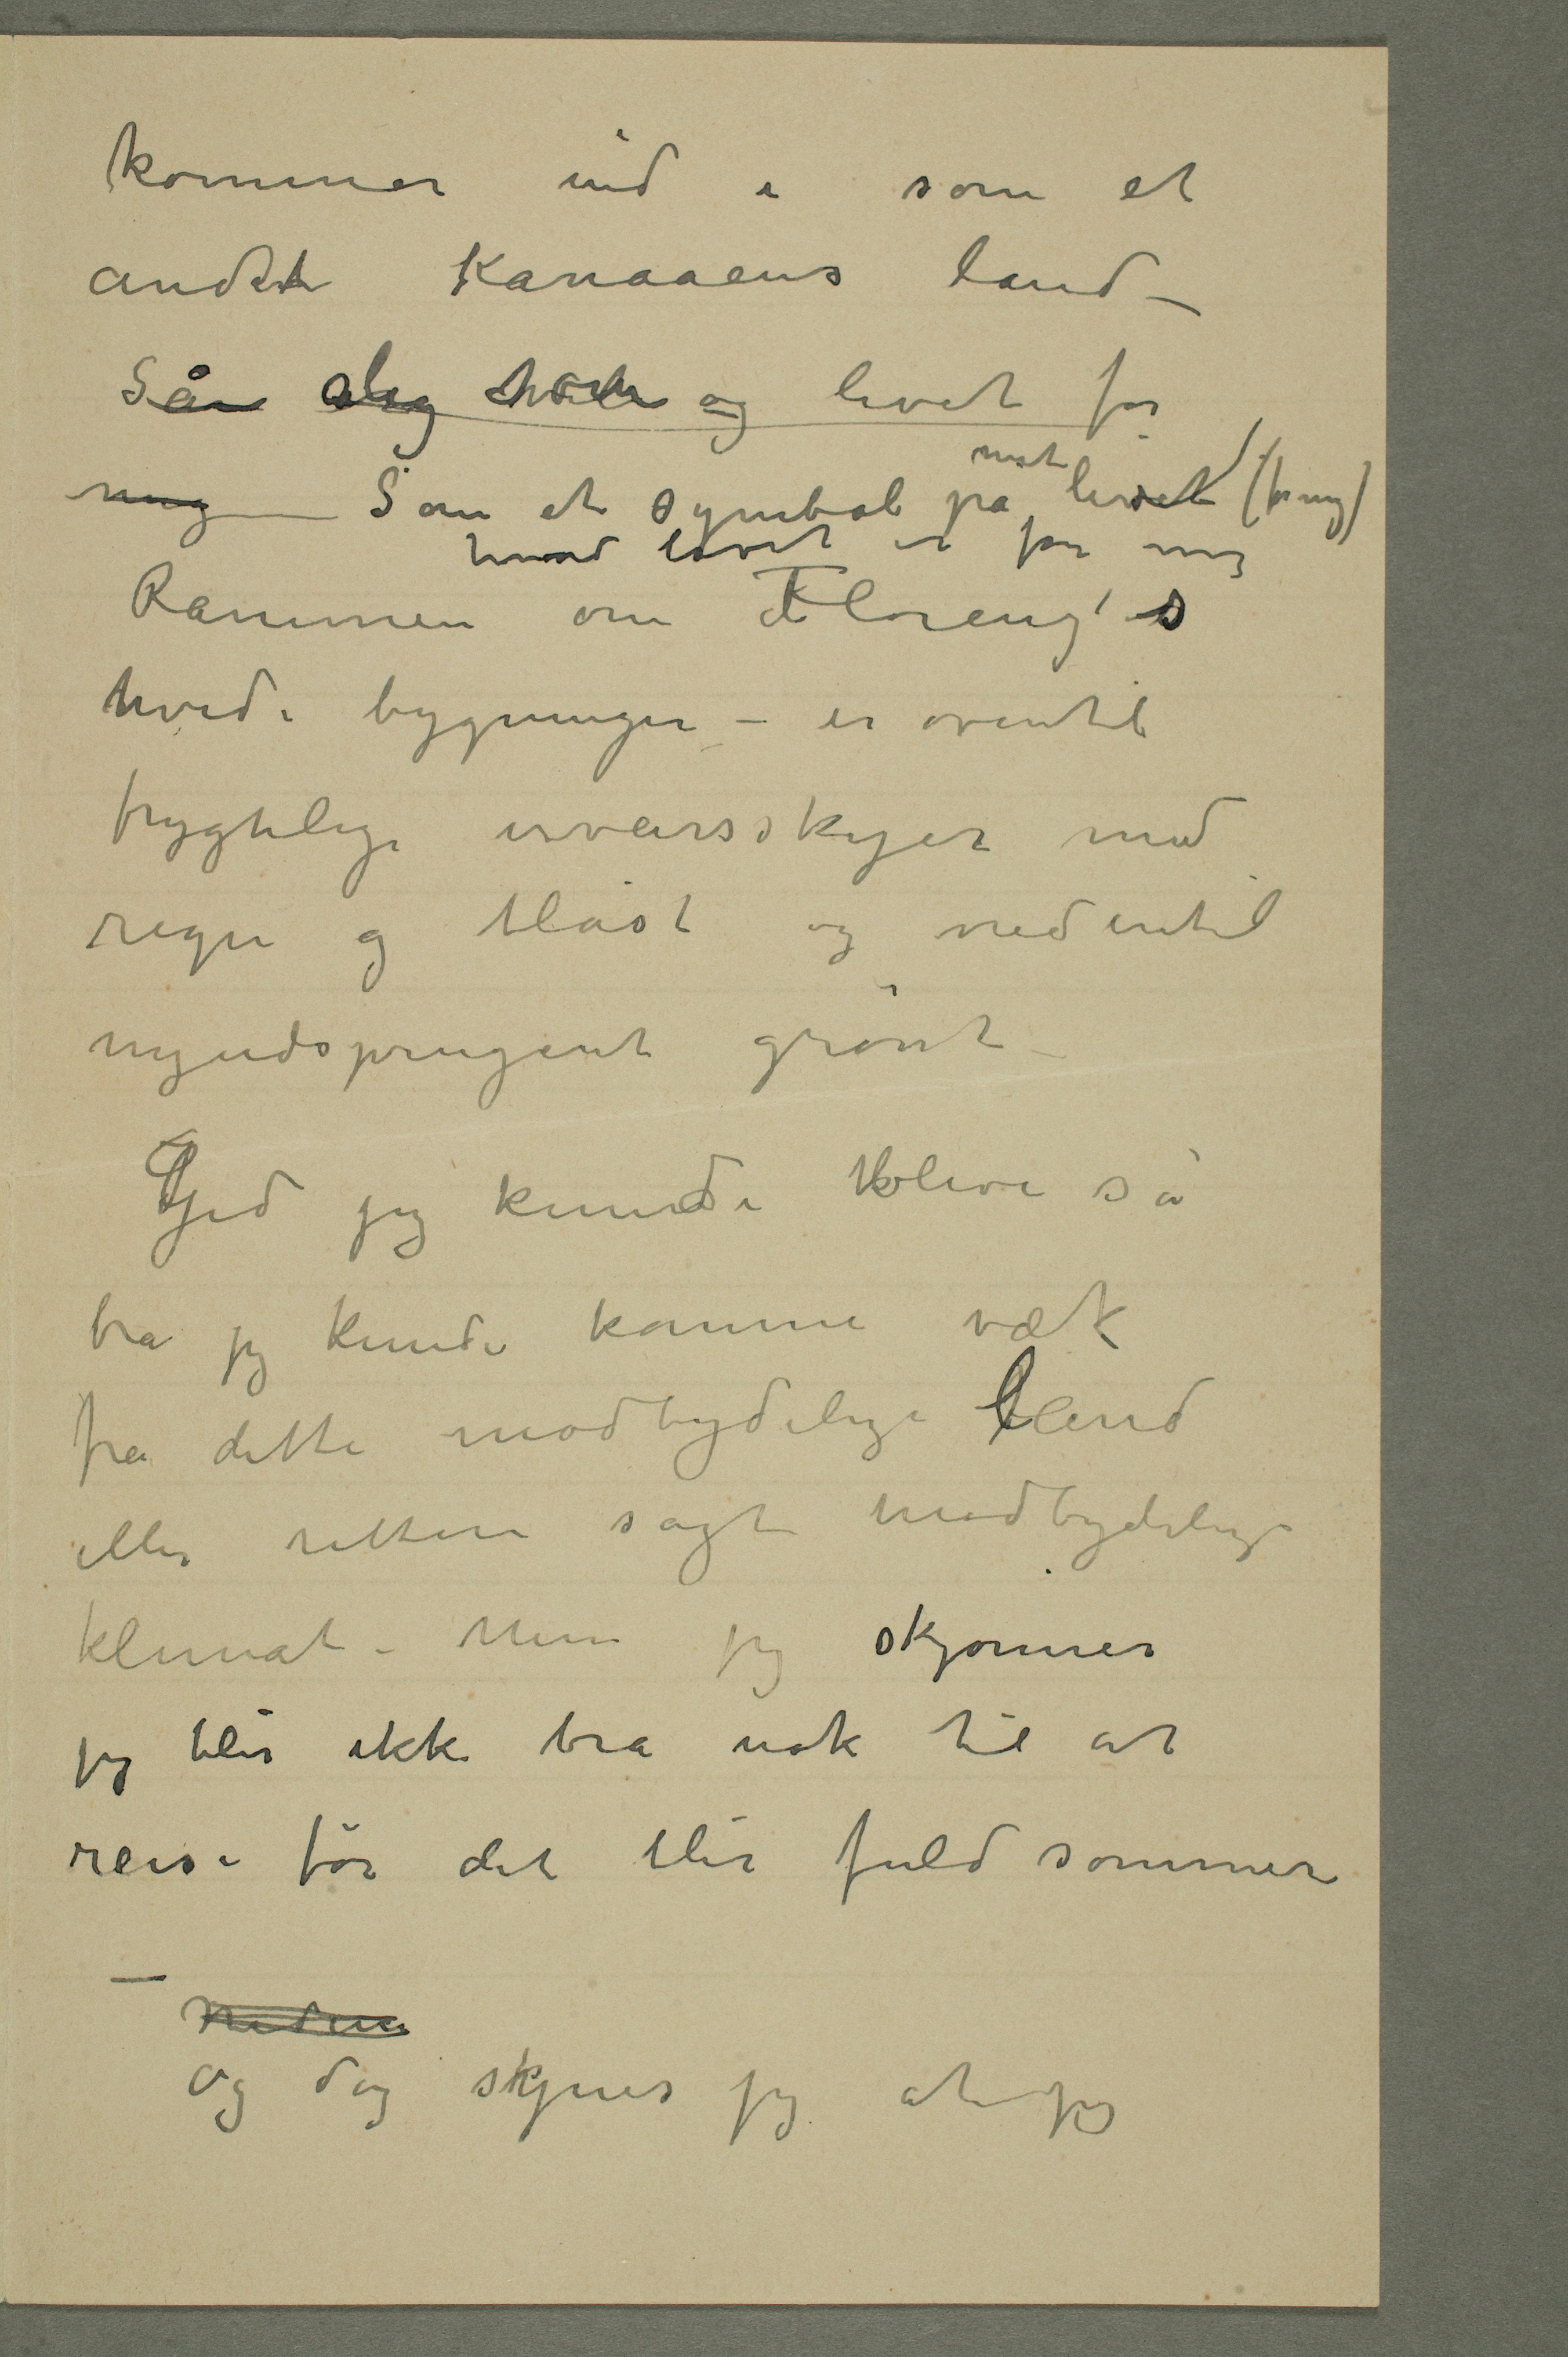 kommer ind i som et
andet Kanaaens land –
Så og livet for
mig – Som et symbol på mit livet (for mig)
hvad livet er for mig
Rammen om Florenz's
hvide bygninger – er oventil
frygtelige uveirsskyer med
regn og blåst og nedentil
nyudsprunget grønt –
Gid jeg kunde blive så
bra jeg kunde komme væk
fra dette modbydelige land
eller rettere sagt modbydelige
klimat – Men jeg skjønner
jeg blir ikke bra nok til at
reise før det blir fuld sommer
–
og dog synes jeg at jeg